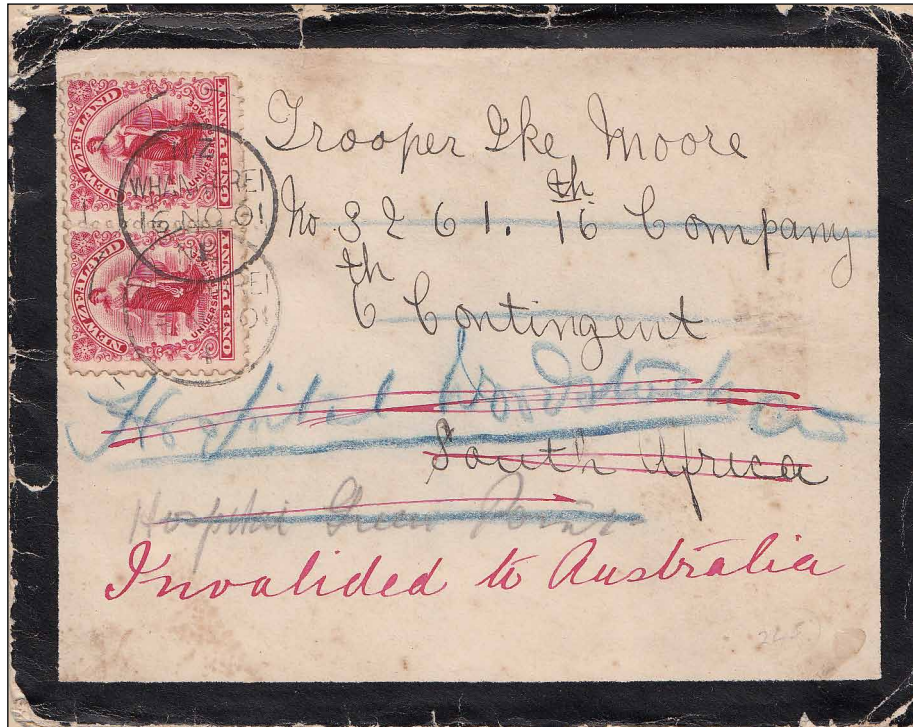 NEW ZEALAND
UNIVERSAL POSTAGE
ONE PENNY
N.Z
WHANGAREI
16 NO 01
NEW ZEALAND
UNIVERSAL
ONE PENNY
Trooper Ike Moore
No 3261. 16th Company
6th Contingent
Hospital Woodstock
South Africa
Hospital Green Point
Invalided to Australia